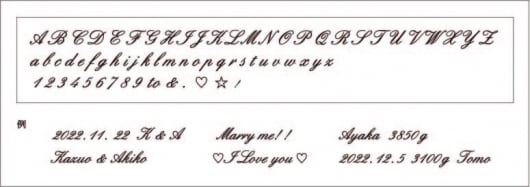 A B C D E F G H I J K L M N O P Q R S T U V W X Y Z
a b c d e f g h i j k l m n o p q r s t u v w x y z
1 2 3 4 5 6 7 8 9 to & . ♡ ☆ !
例
2022. 11. 22 K & A
Kazuo & Akiko
Marry me! !
♡ I Love you ♡
Ayaka 3850g
2022. 12. 5 3100g Tomo